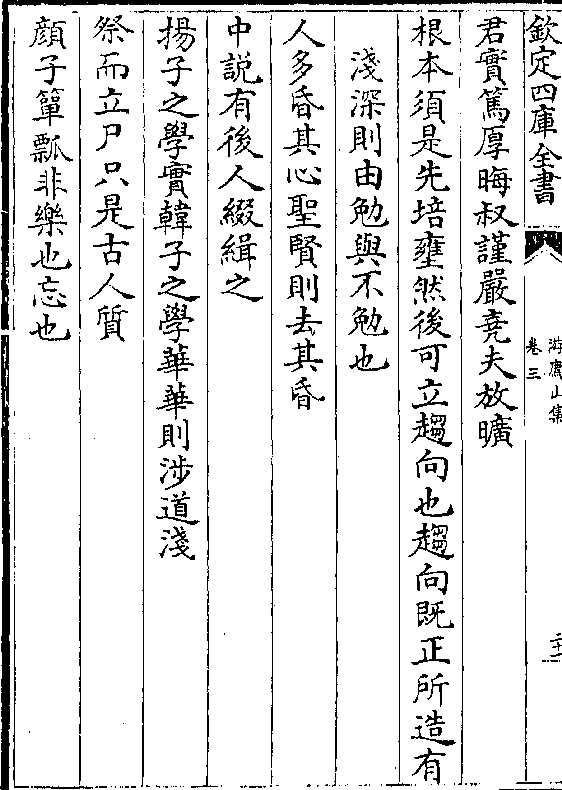 欽定四庫全書
游廌山集
卷三
二十一
君實篤厚晦叔謹嚴堯夫放曠
根本須是先培壅然後可立趨向也趨向既正所造有
淺深則由勉與不勉也
人多昏其心聖賢則去其昏
中説有後人綴緝之
揚子之學實韓子之學華華則涉道淺
祭而立尸只是古人質
顔子簞瓢非樂也忘也